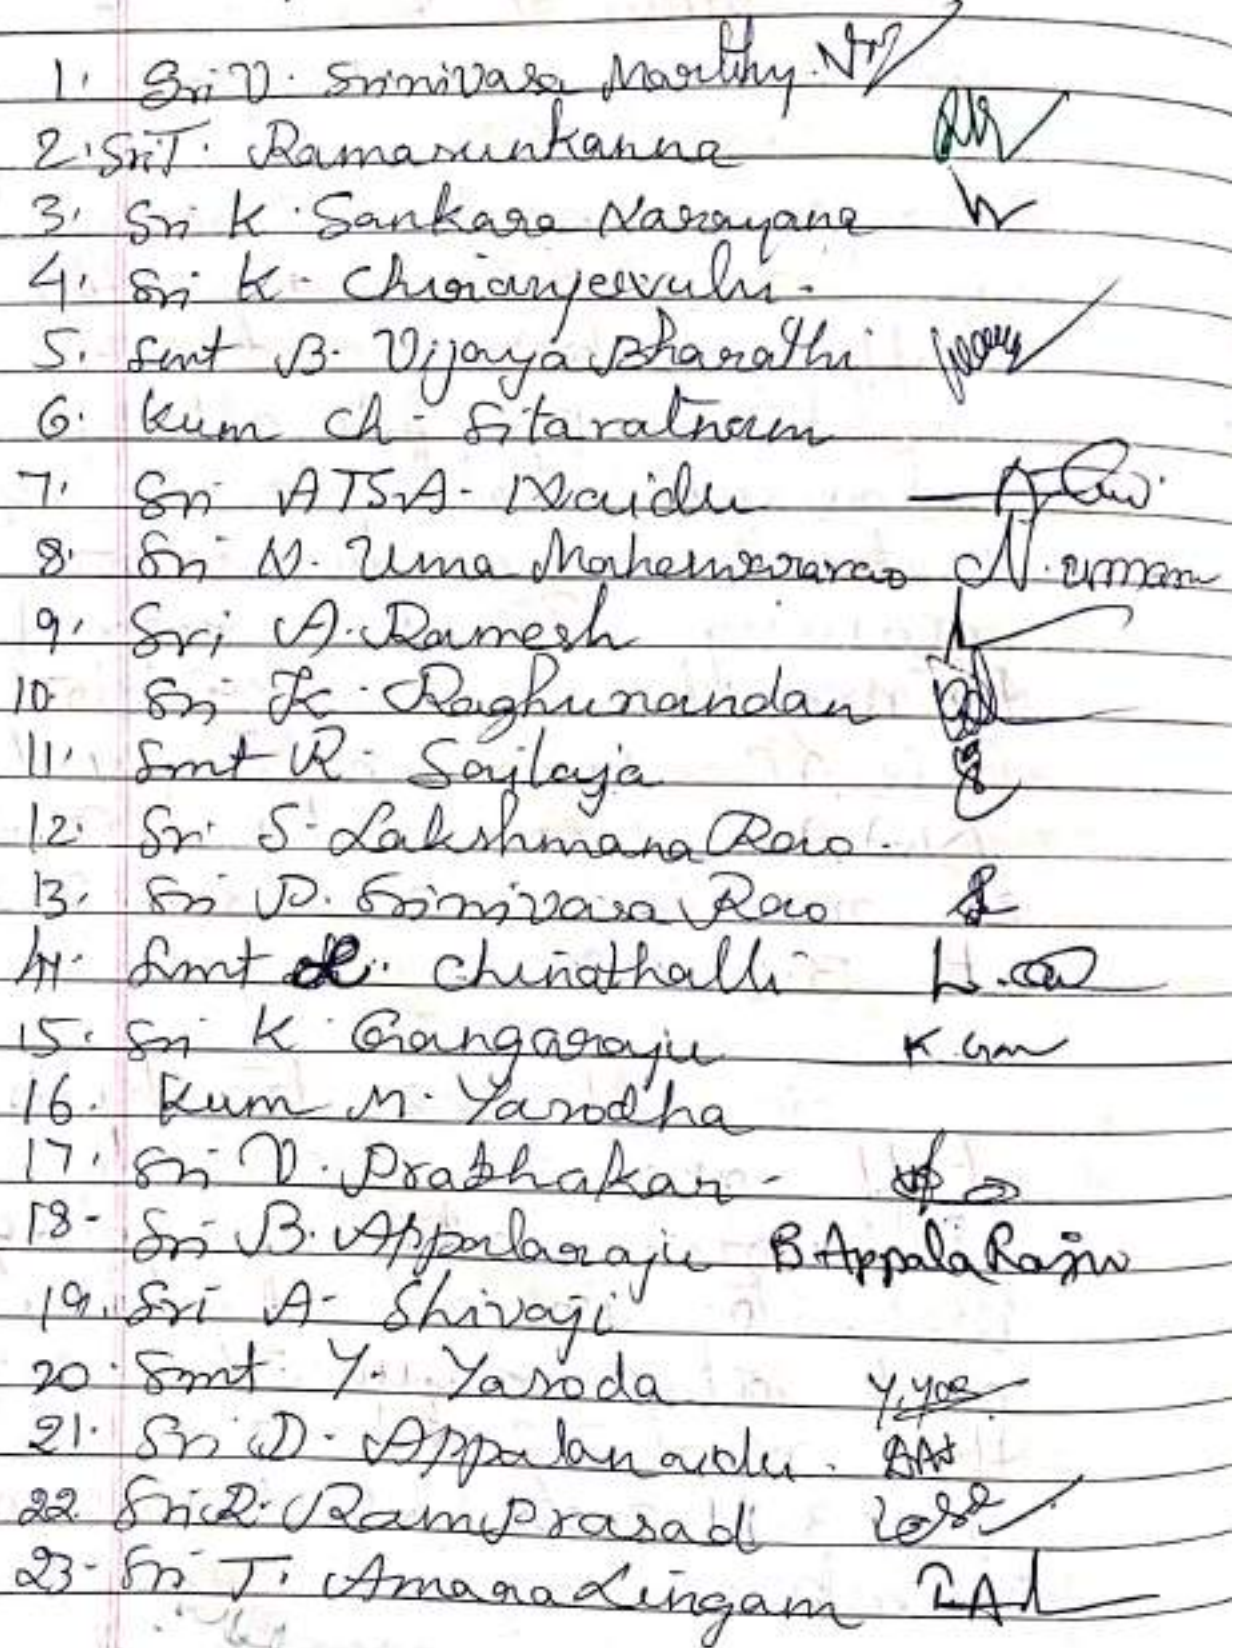 1. Sri V. Srinivasa Marthy.
2. Sri T. Ramarunkanna
3. Sri K. Sankara Narayana
4. Sri K. Chiranjeevulu.
5. Smt B. Vijaya Bharathi
6. Kum Ch. Sitaratnam
7. Sri ATSA. Naidu
8. Sri N. Uma Maheswararao N. umam
9. Sri A. Ramesh
10 Sri K. Raghunandan
11. Smt R. Sailaja
12. Sri S. Lakshmana Rao.
13. Sri D. Srinivasa Rao
14. Smt Chinathalli
15. Sri K. Gangaraju K. Gan
16. Kum M. Yasodha
17. Sri V. Prabhakar -
18- Sri B. Appalaraju B. Appala Raju
19. Sri A. Shivaji
20. Smt Y. Yasoda Y. Yas
21. Sri D. Appalanaidu. DAN
22. Sri R. Ram Prasad
23- Sri T. Amara Lingam T.A